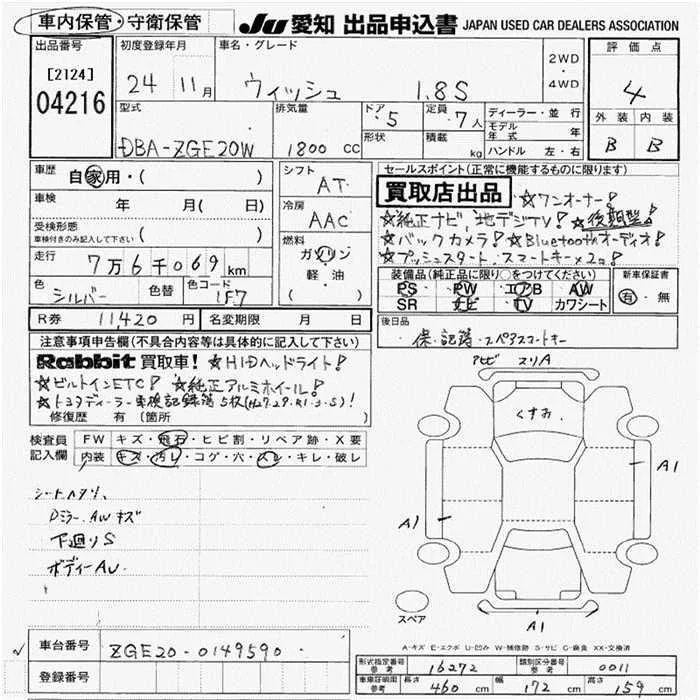 車内保管・守衛保管
JU 愛知 出品申込書 JAPAN USED CAR DEALERS ASSOCIATION
出品番号
[2124]
04216
初度登録年月
24 11月
車名・グレード
ウィッシュ 1.8S
2WD
・
4WD
評価点
4
外装 内装
B B
型式
DBA-ZGE20W
排気量
1800 CC
ドア
5
形状
定員
7人
積載
kg
ディーラー・並行
モデル年式 年
ハンドル 左・右
車歴 自家用・( )
車検 年 月( 日)
受検形態
車検付きのみ記入して下さい ( )
走行 7万6千069km
色 シルバー 色替 色コード 1F7
シフト AT
冷房 AAC
燃料 ガソリン
軽・油
( )
セールスポイント(正常に機能するものに限ります)
買取店出品 ☆ワンオーナー!
☆純正ナビ,地デジTV! ☆後期型!
☆バックカメラ! ☆Bluetoothオーディオ!
☆プッシュスタート スマートキー×2コ!
装備品(純正品に限り○をつけてください)
PS PW エアB AW
SR ナビ TV カワシート
新車保証書
有・無
R券 11,420円 名変期限 月 日
後日品
保.記簿.スペアスマートキー
注意事項申告欄(不具合内容等は具体的に記入して下さい)
Rabbit 買取車! ☆HIDヘッドライト!
☆ビルトインETC! ☆純正アルミホイール!
☆トヨタディーラー車検記録簿5枚(H27.29.R1.3.5)!
修復歴 有(箇所 )
検査員記入欄
FW キズ・飛石・ヒビ割・リペア跡・X要
内装 キズ・汚レ・コゲ・穴・スレ・キレ・破レ
シートヘタリ、
Dミラー.AWキズ
下廻りS
ボディーAU
アビ スリA
くすみ
A1
A1
A1
スペア
A-キズ E-エクボ U-凹み W-補修跡 S-サビ C-腐食 XX-交換済
車台番号 ZGE20-0149590
登録番号
形式指定番号 参考 16272 類別区分番号 参考 0011
車車証明用 参考 長さ 460cm 幅 172cm 高さ 159cm